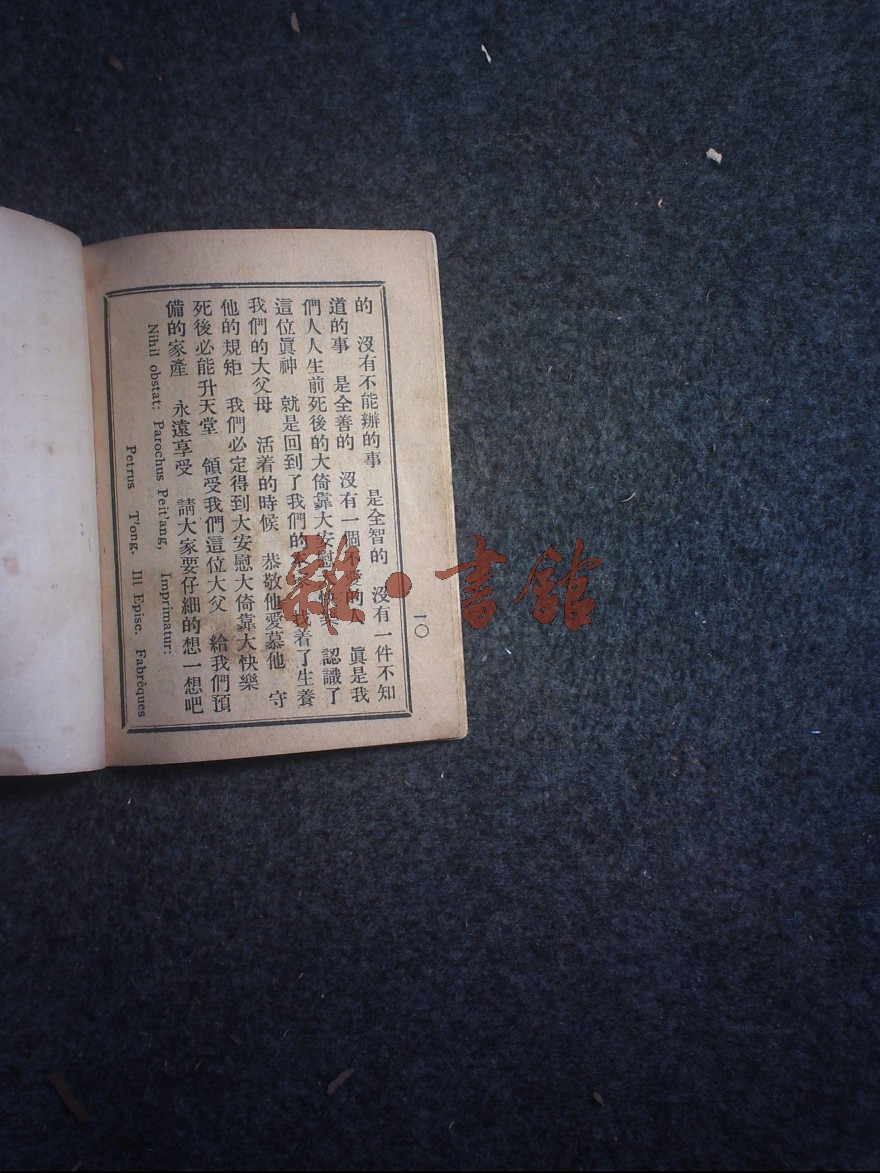 的　沒有不能辦的事　是全智的　沒有一件不知
道的事　是全善的　沒有一個不愛的　眞是我
們人人生前死後的大倚靠大安慰　認識了
這位眞神　就是回到了我們的　找着了生養
我們的大父母　活着的時候　恭敬他愛慕他　守
他的規矩　我們必定得到大安慰大倚靠大快樂
死後必能升天堂　領受我們這位大父　給我們預
備的家產　永遠享受　請大家要仔細的想一想吧
Nihil obstat: Parochus Peit'ang, Imprimatur:
Petrus T'ong. Ill Episc. Fabrèques
一〇
雜·書館